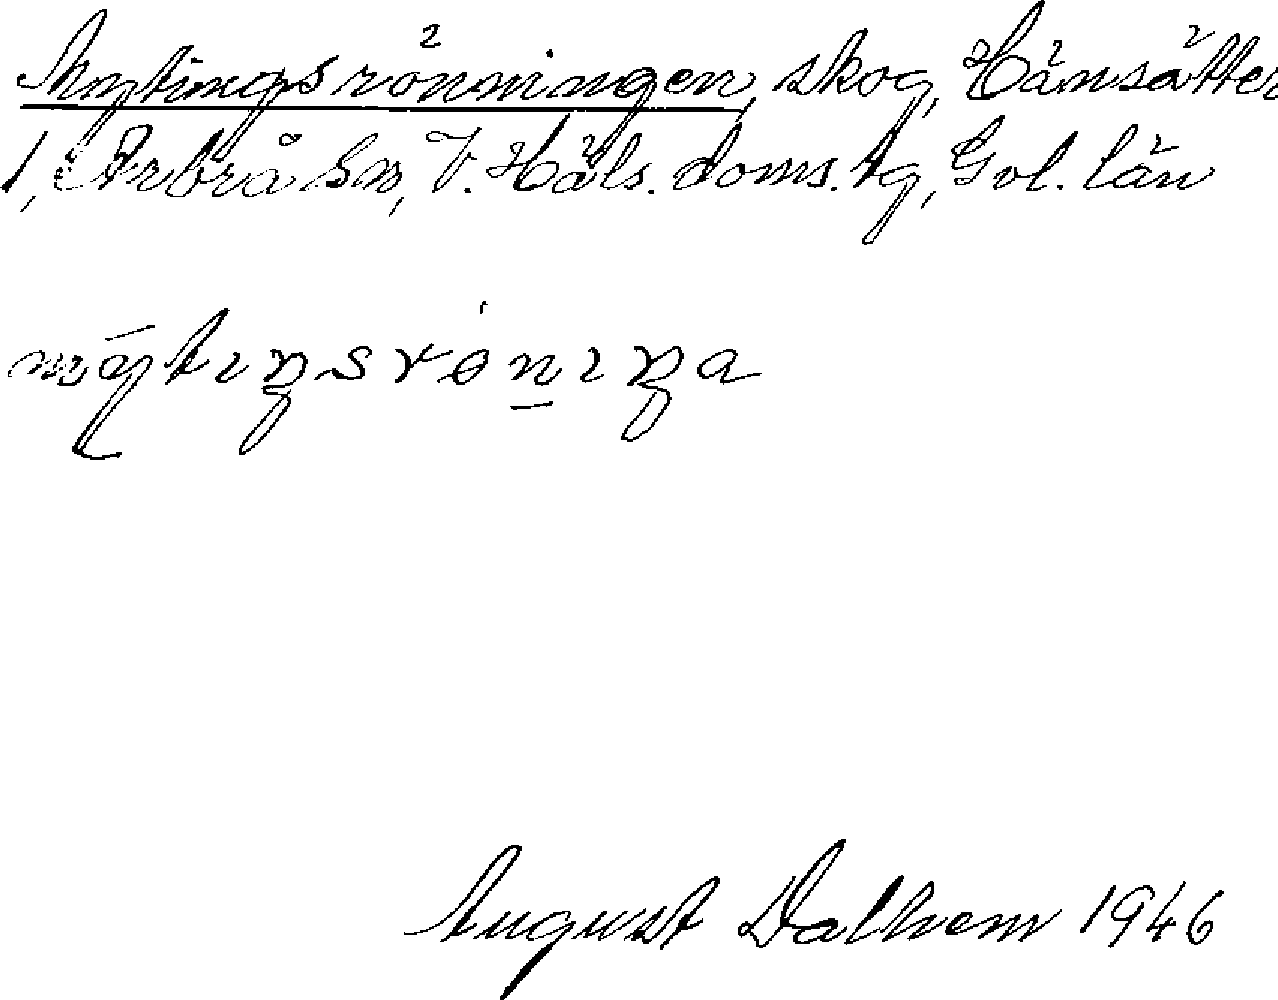 Mytingsrönningen, skog, Hänsätter
1, Arbrå sn, V. Häls. doms. tg, Gvl. län
mýtɪŋsrønɪŋa
August Dalhem 1946